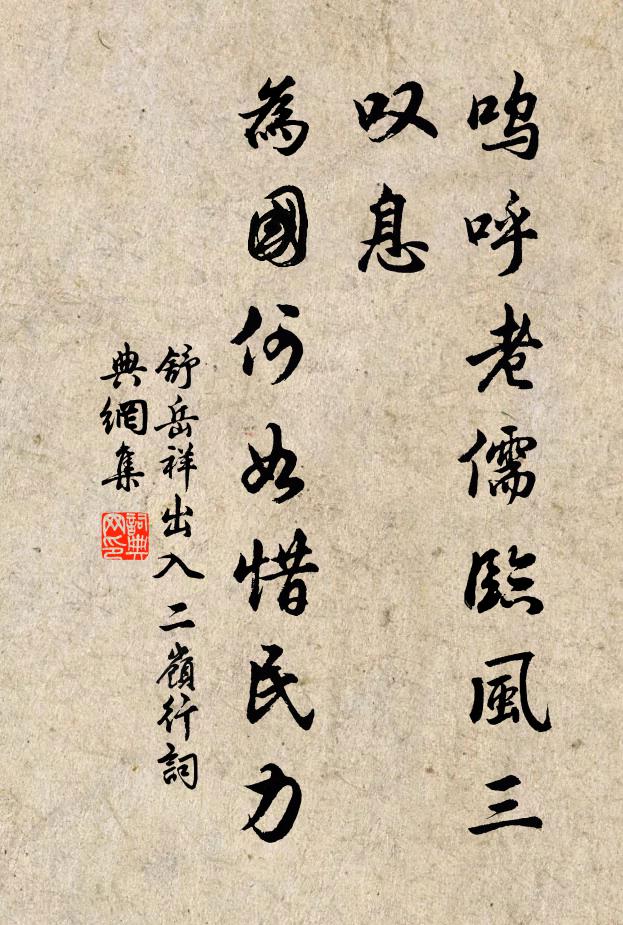 呜呼老儒臨風三
叹息
為國何如惜民力
舒岳祥出入二嶺行詞
典網集
詞典
网印